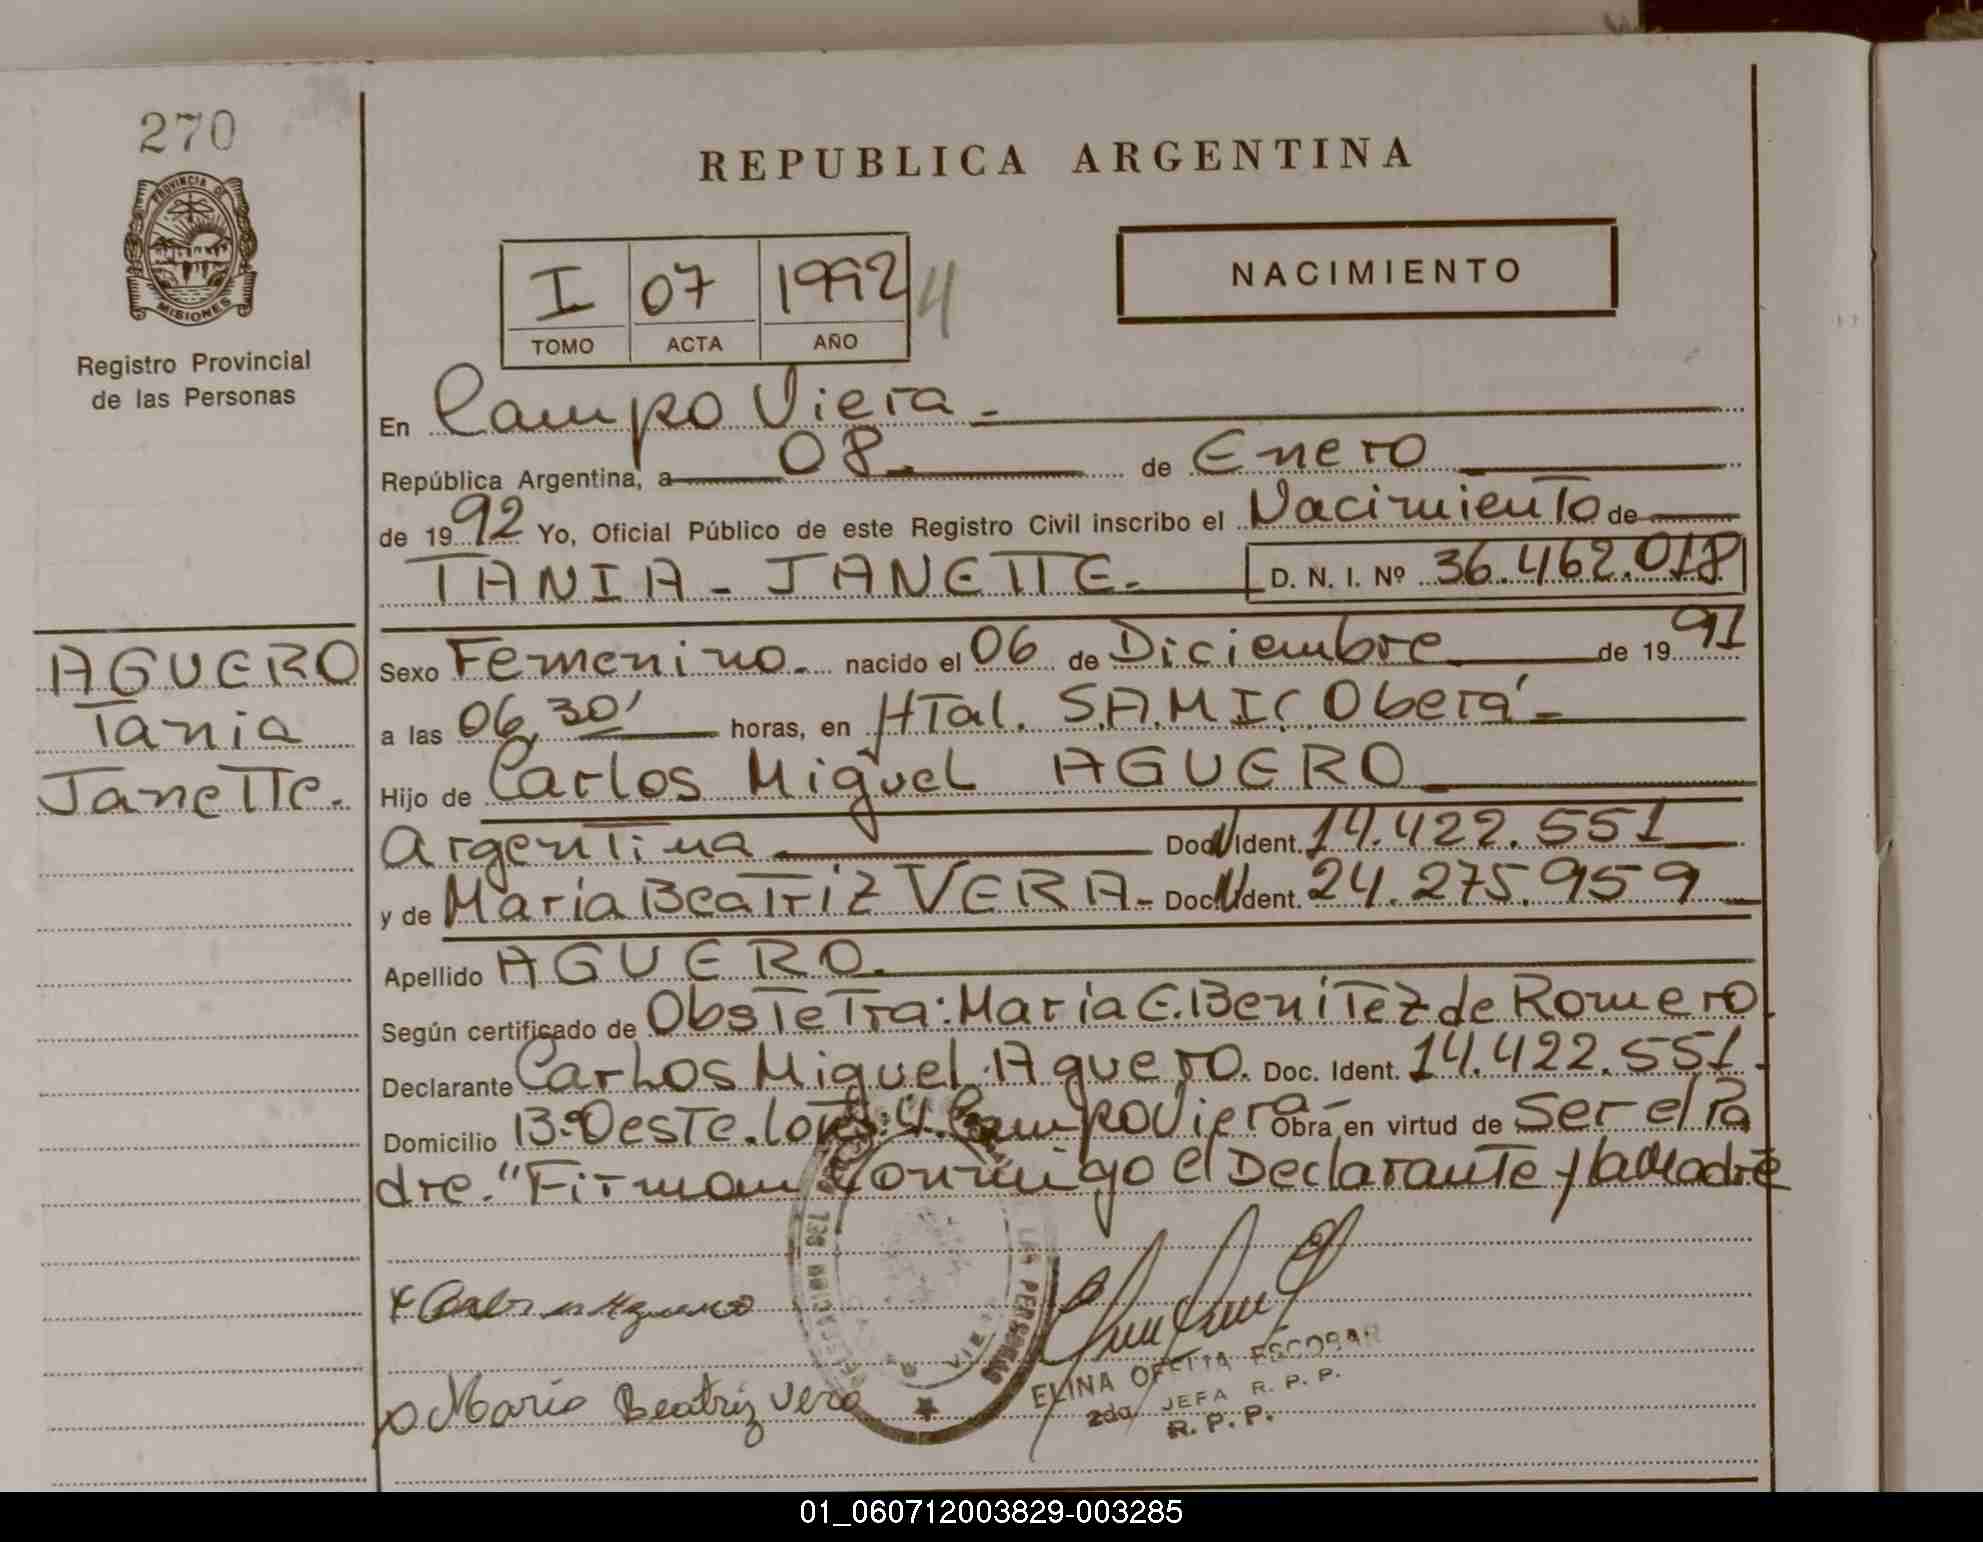 270
PROVINCIA DE
MISIONES
Registro Provincial
de las Personas
AGUERO
Tania
Janette.
REPUBLICA ARGENTINA
I 07 1992 4
TOMO ACTA AÑO
NACIMIENTO
En Campo Viera-
República Argentina, a 08 de Enero
de 1992 Yo, Oficial Público de este Registro Civil inscribo el Nacimiento de
TANIA - JANETTE. D. N. I. Nº 36.462.018
Sexo Femenino. nacido el 06 de Diciembre de 1991
a las 06,30' horas, en HTal. S.A.M.I.C. Oberá-
Hijo de Carlos Miguel AGUERO
Argentina Doc. Ident. 14.422.551
y de María Beatriz VERA- Doc. Ident. 24.275.959
Apellido AGUERO.
Según certificado de Obstetra: María E. Benítez de Romero.
Declarante Carlos Miguel Aguero. Doc. Ident. 14.422.551-
Domicilio B:Oeste. Lote: 4. Campo Viera- Obra en virtud de Ser el Pa
dre. "Firman Conmigo el Declarante y la Madre
Carlos M Aguero
María Beatriz Vera
LAS PERSONAS
ELINA OFELIA ESCOBAR
2da. JEFA R. P. P.
R. P. P.
01_060712003829-003285